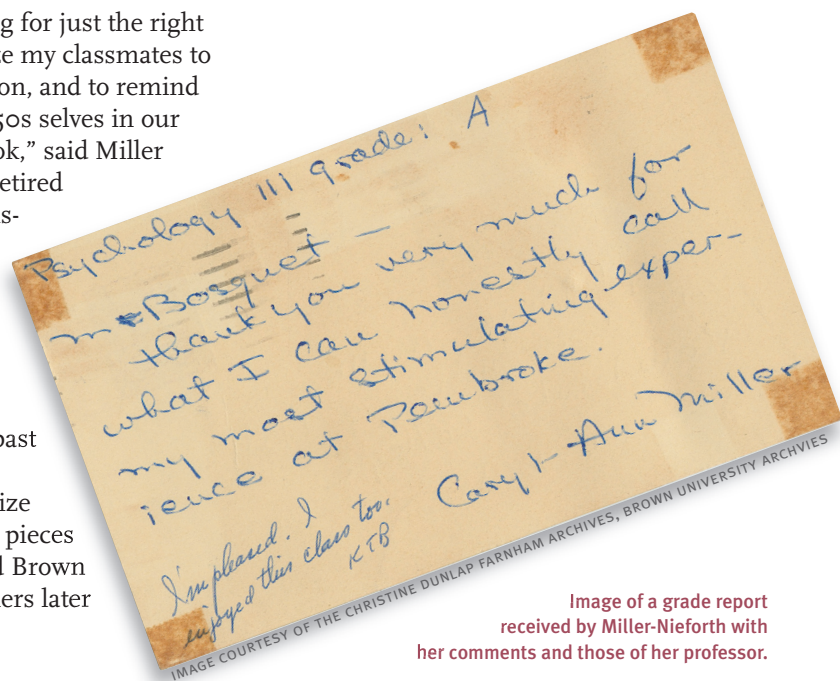 g for just the right
ze my classmates to
on, and to remind
50s selves in our
ok,” said Miller
etired
is-
past
ize
pieces
d Brown
ers later
Psychology 111 grade: A
Bosquet —
thank you very much for
what I can honestly call
my most stimulating exper-
ience at Pembroke.
Caryl-Ann Miller
I'm pleased. I
enjoyed this class too.
KTB
IMAGE COURTESY OF THE CHRISTINE DUNLAP FARNHAM ARCHIVES, BROWN UNIVERSITY ARCHVIES
Image of a grade report
received by Miller-Nieforth with
her comments and those of her professor.